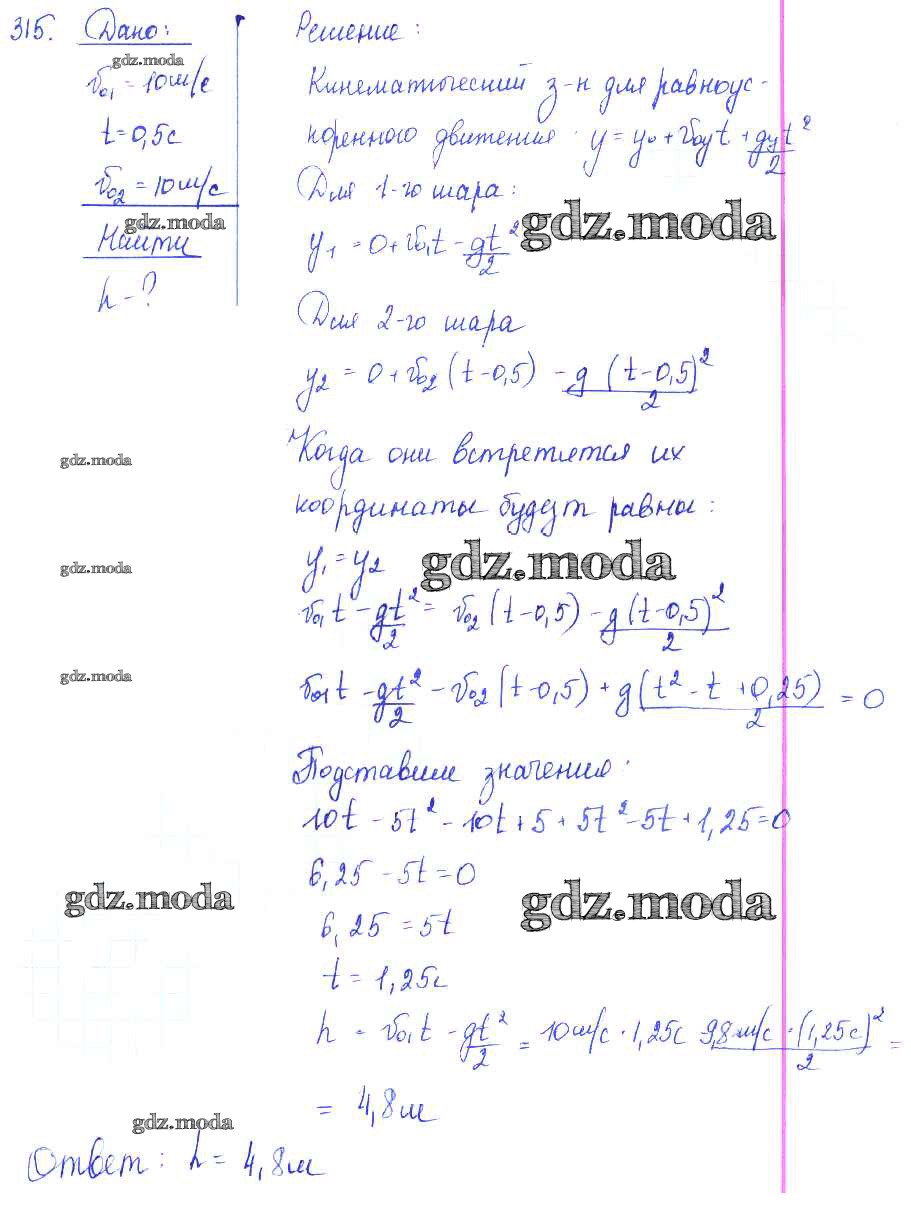 315. Дано:
gdz.moda
v₀₁ = 10 м/с
t = 0,5 с
v₀₂ = 10 м/с
gdz.moda
Найти
h - ?
Решение:
Кинематический з-н для равноус-
коренного движения: y = y₀ + v₀yt + gyt²/2
Для 1-го шара:
gdz.moda
y₁ = 0 + v₀₁t - gt²/2
Для 2-го шара
y₂ = 0 + v₀₂(t-0,5) - g(t-0,5)²/2
gdz.moda
Когда они встретятся их
координаты будут равны:
gdz.moda
gdz.moda
y₁ = y₂
v₀₁t - gt²/2 = v₀₂(t-0,5) - g(t-0,5)²/2
gdz.moda
v₀₁t - gt²/2 - v₀₂(t-0,5) + g(t² - t + 0,25)/2 = 0
Подставим значения:
10t - 5t² - 10t + 5 + 5t² - 5t + 1,25 = 0
6,25 - 5t = 0
gdz.moda
gdz.moda
6,25 = 5t
t = 1,25с
h = v₀₁t - gt²/2 = 10 м/с · 1,25с 9,8 м/с · (1,25с)²/2 =
= 4,8 м
gdz.moda
Ответ: h = 4,8 м